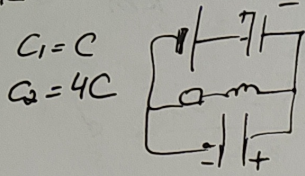 C₁ = C
C₂ = 4C
-
- +